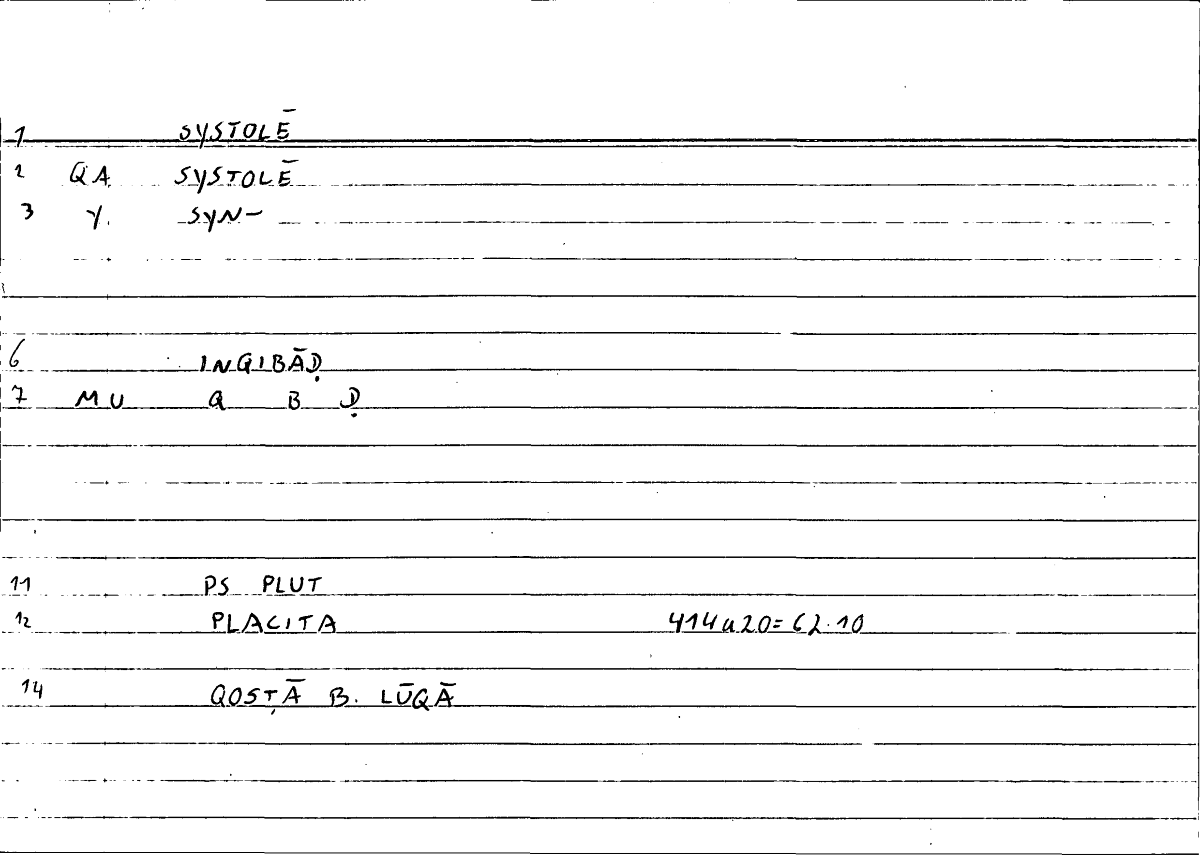 1 SYSTOLĒ
2 QA SYSTOLĒ
3 Y. SYN-
6 INQIBĀḌ
7 MU Q B Ḍ
11 PS PLUT
12 PLACITA 414a20=62.10
14 QOSṬĀ B. LŪQĀ